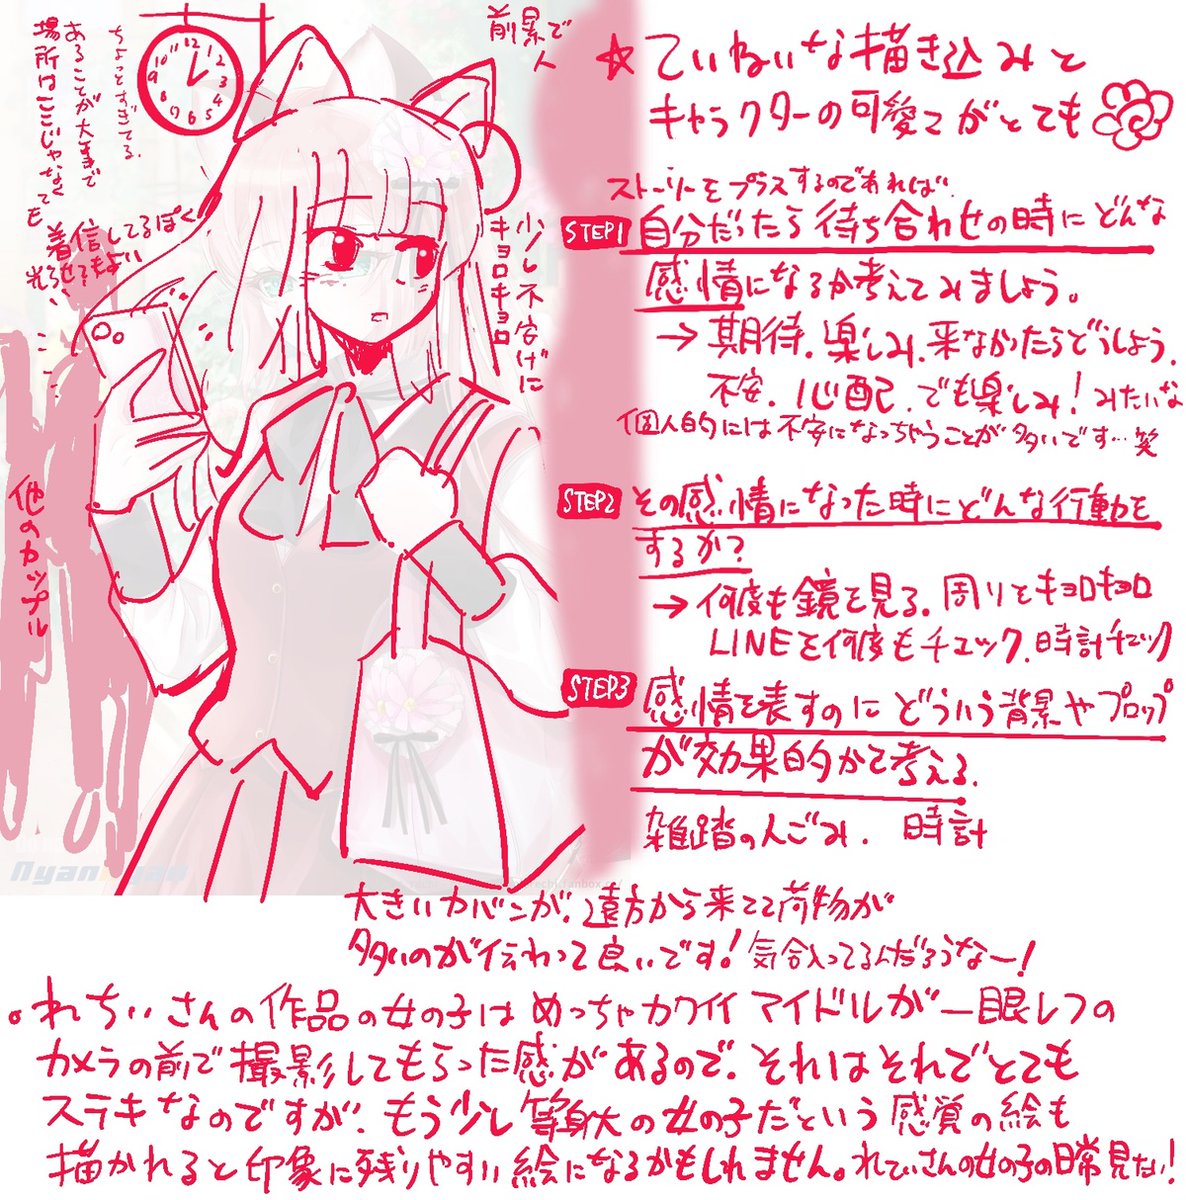 前景で
人
ちょっとすぎてる。
あることが大事で
場所はここじゃなくても
着信してるぽく
12
1
2
3
4
5
6
7
8
9
10
11
少し不安げに
キョロキョロ
他のカップル
☆ ていねいな描き込みと
キャラクターの可愛さがとても
ストーリーをプラスするのであれば、
STEP1 自分だったら待ち合わせの時にどんな
感情になるか考えてみましょう。
→ 期待、楽しみ、来なかったらどうしよう、
不安、心配、でも楽しみ!みたいな
個人的には不安になっちゃうことが多いです…笑
STEP2 その感情になった時にどんな行動を
するか?
→ 何度も鏡を見る。周りをキョロキョロ
LINEを何度もチェック、時計チェック
STEP3 感情を表すのにどういう背景やプロップ
が効果的かを考える。
雑踏の人ごみ、時計
大きいカバンが、遠方から来てて荷物が
多いのが伝わって良いです!気合入ってるんだろうなー!
。れちぃさんの作品の女の子はめっちゃカワイイ アイドルが一眼レフの
カメラの前で撮影してもらった感があるので、それはそれでとても
ステキなのですが、もう少し等身大の女の子だという感覚の絵も
描かれると印象に残りやすい絵になるかもしれません。れちぃさんの女の子の日常見たい!